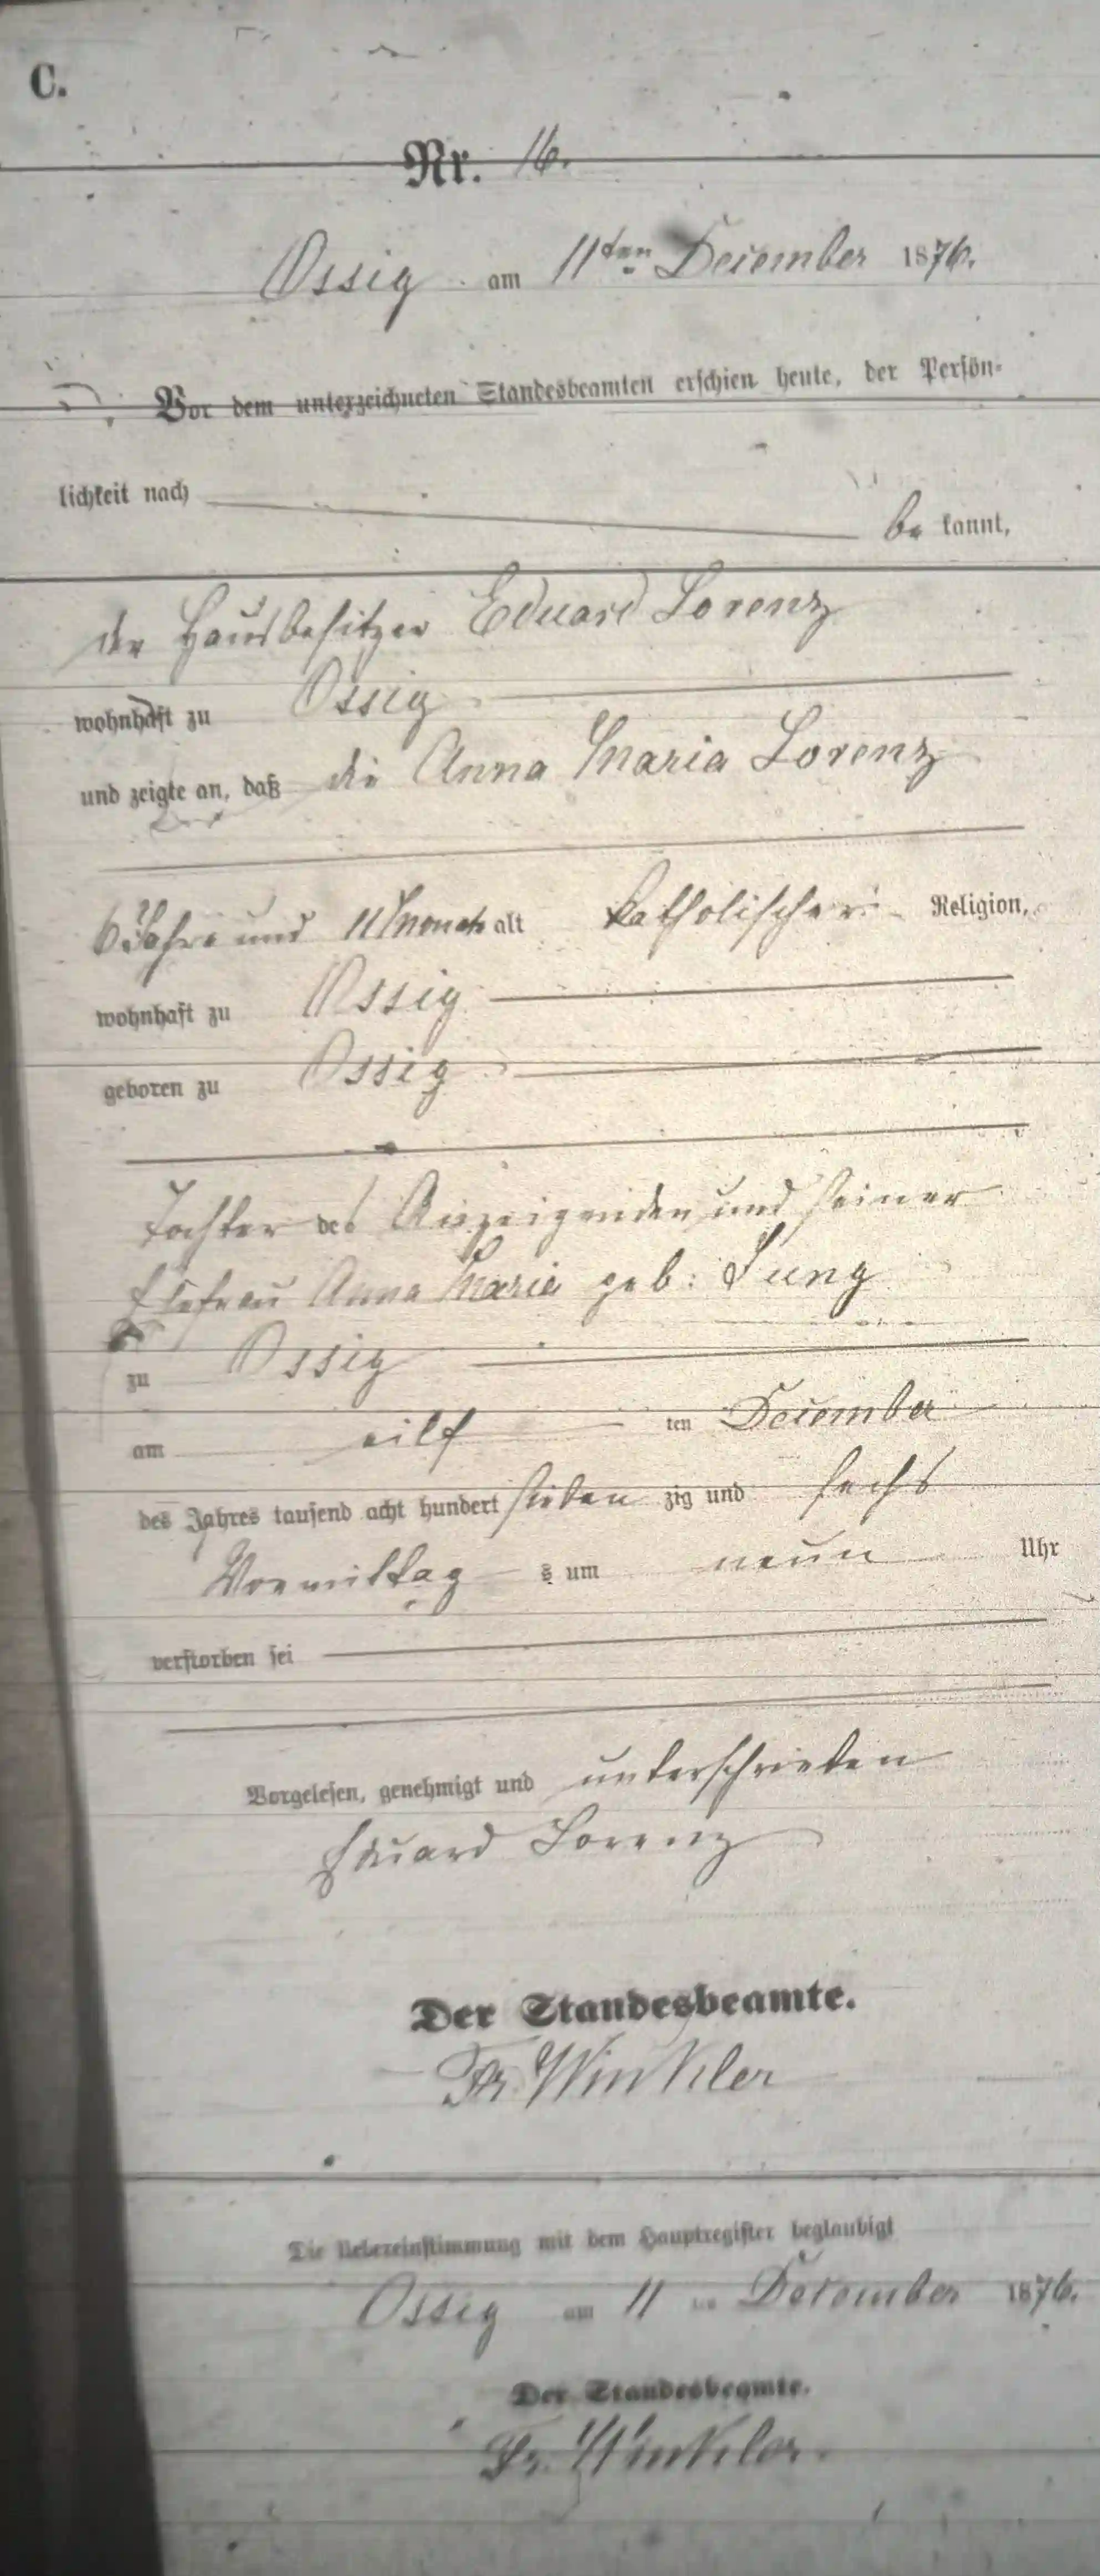 C.
Nr. 16.
Ossig am 11ten December 1876.
Vor dem unterzeichneten Standesbeamten erschien heute, der Persön-
lichkeit nach
be kannt,
der Hausbesitzer Eduard Lorenz
wohnhaft zu Ossig
und zeigte an, daß die Anna Maria Lorenz
6 Jahre und 11 Monate alt katholischer Religion,
wohnhaft zu Ossig
geboren zu Ossig
Tochter des Anzeigenden und seiner
Ehefrau Anna Maria geb:
zu Ossig
am eilf ten December
des Jahres tausend acht hundert sieben zig und sechs
Vormittag s um neun Uhr
verstorben sei
Vorgelesen, genehmigt und unterschrieben
Eduard Lorenz
Der Standesbeamte.
Fr. Winkler
Die Uebereinstimmung mit dem Hauptregister beglaubigt
Ossig am 11 ten December 1876.
Der Standesbeamte.
Fr. Winkler.